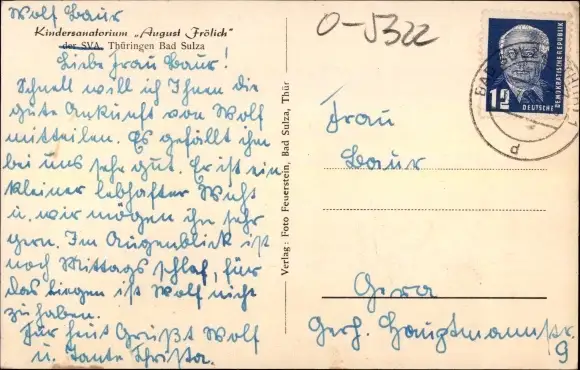 Wolf Baur
Kindersanatorium „August Frölich"
der SVA, Thüringen Bad Sulza
Liebe Frau Baur!
Schnell will ich Ihnen die
gute Ankunft von Wolf
mitteilen. Es gefällt ihm
bei uns sehr gut. Er ist ein
kleiner lebhafter Wicht
u. wir mögen ihn sehr
gern. Im Augenblick ist
noch Mittagsschlaf, für
das liegen ist Wolf nicht
zu haben.
Für heut Grüßt Wolf
u. Tante Christa.
Verlag: Foto Feuerstein, Bad Sulza, Thür
O-5322
DEUTSCHE DEMOKRATISCHE REPUBLIK
12
BAD SULZA
d
Frau
Baur
Gera
Gerh. Hauptmannstr.
9